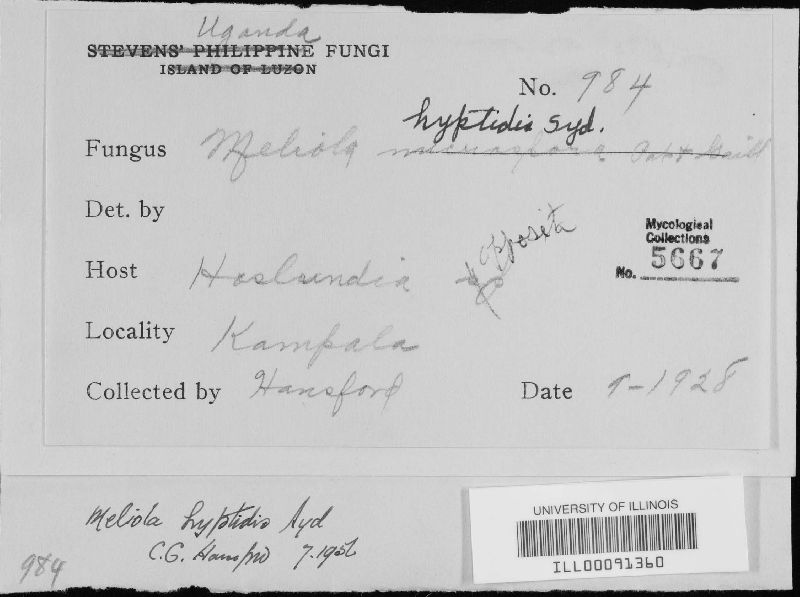 Uganda
STEVENS' PHILIPPINE FUNGI
ISLAND OF LUZON
No. 984
hyptidis Syd.
Fungus Meliola microspora Pat & Gaill
Det. by
opposita
Host Hoslundia sp
Mycological
Collections
No. 5667
Locality Kampala
Collected by Hansford Date 9-1928
Meliola hyptidis Syd
C.G. Hansford 7.1956
984
UNIVERSITY OF ILLINOIS
ILL00091360